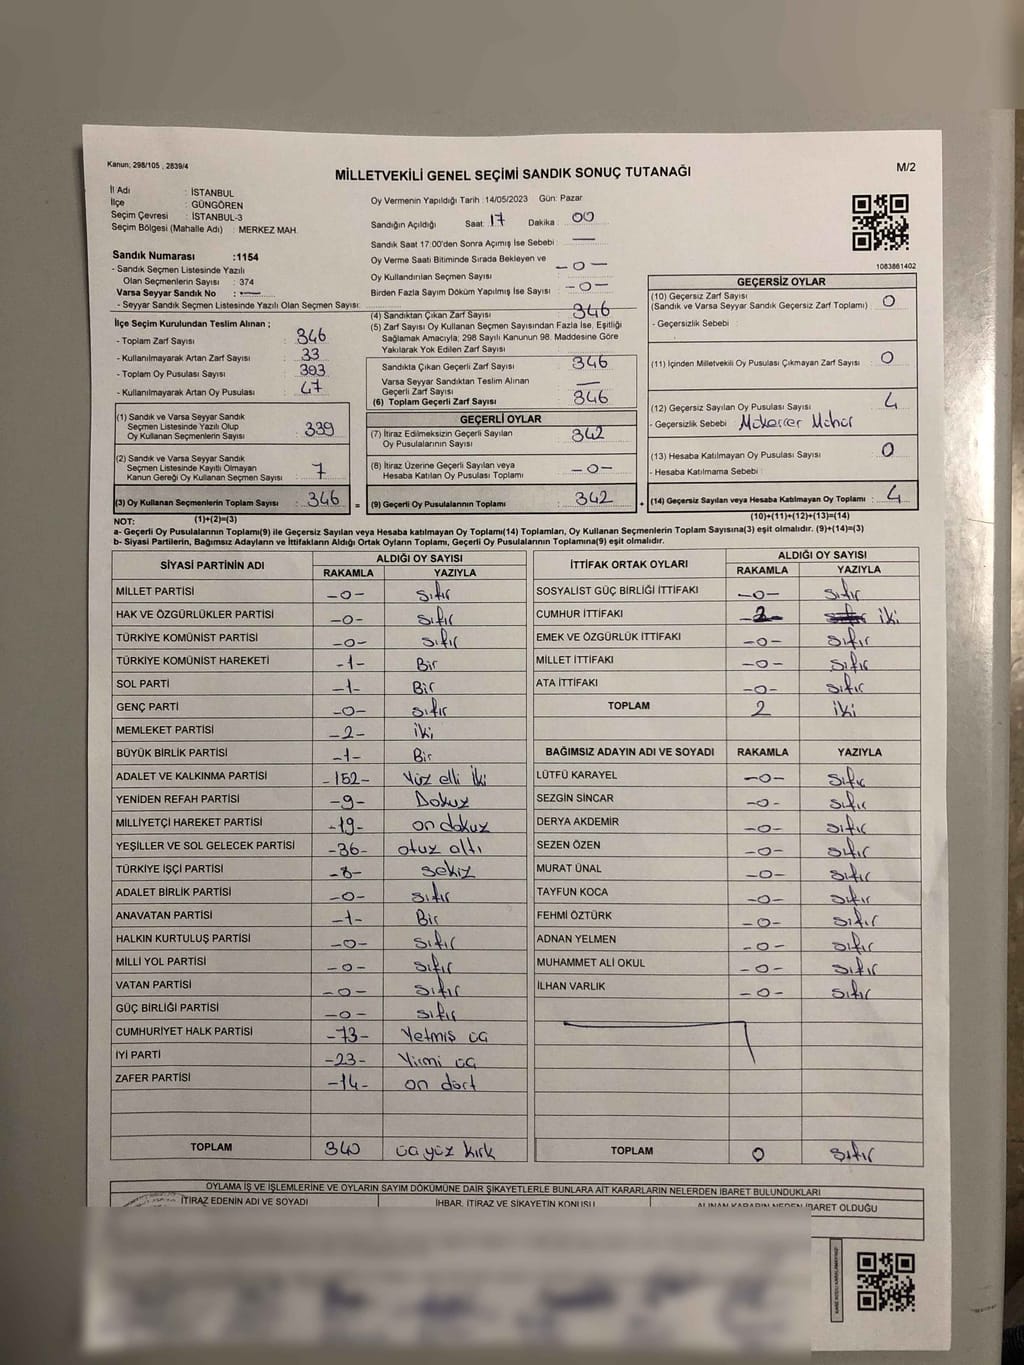 Kanun; 298/105 , 2839/4
MİLLETVEKİLİ GENEL SEÇİMİ SANDIK SONUÇ TUTANAĞI
M/2
İl Adı : İSTANBUL
İlçe : GÜNGÖREN
Seçim Çevresi : İSTANBUL-3
Seçim Bölgesi (Mahalle Adı) : MERKEZ MAH.
Oy Vermenin Yapıldığı Tarih :14/05/2023 Gün: Pazar
Sandığın Açıldığı Saat: 17 Dakika : 00
Sandık Saat 17:00'den Sonra Açımış İse Sebebi : —
Oy Verme Saati Bitiminde Sırada Bekleyen ve
Oy Kullandırılan Seçmen Sayısı : -0-
Birden Fazla Sayım Döküm Yapılmış İse Sayısı : -0-
1083861402
Sandık Numarası :1154
- Sandık Seçmen Listesinde Yazılı
Olan Seçmenlerin Sayısı : 374
Varsa Seyyar Sandık No : —
- Seyyar Sandık Seçmen Listesinde Yazılı Olan Seçmen Sayısı:
İlçe Seçim Kurulundan Teslim Alınan ;
- Toplam Zarf Sayısı : 346
- Kullanılmayarak Artan Zarf Sayısı : 33
- Toplam Oy Pusulası Sayısı : 393
- Kullanılmayarak Artan Oy Pusulası : 47
(1) Sandık ve Varsa Seyyar Sandık
Seçmen Listesinde Yazılı Olup
Oy Kullanan Seçmenlerin Sayısı : 339
(2) Sandık ve Varsa Seyyar Sandık
Seçmen Listesinde Kayıtlı Olmayan
Kanun Gereği Oy Kullanan Seçmen Sayısı : 7
(3) Oy Kullanan Seçmenlerin Toplam Sayısı : 346 =
(1)+(2)=(3)
(4) Sandıktan Çıkan Zarf Sayısı : 346
(5) Zarf Sayısı Oy Kullanan Seçmen Sayısından Fazla İse, Eşitliği
Sağlamak Amacıyla; 298 Sayılı Kanunun 98. Maddesine Göre
Yakılarak Yok Edilen Zarf Sayısı :
Sandıkta Çıkan Geçerli Zarf Sayısı : 346
Varsa Seyyar Sandıktan Teslim Alınan
Geçerli Zarf Sayısı : —
(6) Toplam Geçerli Zarf Sayısı : 346
GEÇERLİ OYLAR
(7) İtiraz Edilmeksizin Geçerli Sayılan
Oy Pusulalarının Sayısı : 342
(8) İtiraz Üzerine Geçerli Sayılan veya
Hesaba Katılan Oy Pusulası Toplamı : -0-
(9) Geçerli Oy Pusulalarının Toplamı : 342 +
GEÇERSİZ OYLAR
(10) Geçersiz Zarf Sayısı
(Sandık ve Varsa Seyyar Sandık Geçersiz Zarf Toplamı) : 0
- Geçersizlik Sebebi :
(11) İçinden Milletvekili Oy Pusulası Çıkmayan Zarf Sayısı : 0
(12) Geçersiz Sayılan Oy Pusulası Sayısı : 4
- Geçersizlik Sebebi : Mükerrer Mühür
(13) Hesaba Katılmayan Oy Pusulası Sayısı : 0
- Hesaba Katılmama Sebebi :
(14) Geçersiz Sayılan veya Hesaba Katılmayan Oy Toplamı : 4
(10)+(11)+(12)+(13)=(14)
NOT:
a- Geçerli Oy Pusulalarının Toplamı(9) ile Geçersiz Sayılan veya Hesaba katılmayan Oy Toplamı(14) Toplamları, Oy Kullanan Seçmenlerin Toplam Sayısına(3) eşit olmalıdır. (9)+(14)=(3)
b- Siyasi Partilerin, Bağımsız Adayların ve İttifakların Aldığı Ortak Oyların Toplamı, Geçerli Oy Pusulalarının Toplamına(9) eşit olmalıdır.
SİYASİ PARTİNİN ADI ALDIĞI OY SAYISI
RAKAMLA YAZIYLA
MİLLET PARTİSİ -0- sıfır
HAK VE ÖZGÜRLÜKLER PARTİSİ -0- sıfır
TÜRKİYE KOMÜNİST PARTİSİ -0- sıfır
TÜRKİYE KOMÜNİST HAREKETİ -1- Bir
SOL PARTİ -1- Bir
GENÇ PARTİ -0- sıfır
MEMLEKET PARTİSİ -2- iki
BÜYÜK BİRLİK PARTİSİ -1- Bir
ADALET VE KALKINMA PARTİSİ -152- Yüz elli iki
YENİDEN REFAH PARTİSİ -9- Dokuz
MİLLİYETÇİ HAREKET PARTİSİ -19- on dokuz
YEŞİLLER VE SOL GELECEK PARTİSİ -36- otuz altı
TÜRKİYE İŞÇİ PARTİSİ -8- sekiz
ADALET BİRLİK PARTİSİ -0- sıfır
ANAVATAN PARTİSİ -1- Bir
HALKIN KURTULUŞ PARTİSİ -0- sıfır
MİLLİ YOL PARTİSİ -0- sıfır
VATAN PARTİSİ -0- sıfır
GÜÇ BİRLİĞİ PARTİSİ -0- sıfır
CUMHURİYET HALK PARTİSİ -73- Yetmiş üç
İYİ PARTİ -23- Yirmi üç
ZAFER PARTİSİ -14- on dört
TOPLAM 340 üçyüz kırk
İTTİFAK ORTAK OYLARI ALDIĞI OY SAYISI
RAKAMLA YAZIYLA
SOSYALİST GÜÇ BİRLİĞİ İTTİFAKI -0- sıfır
CUMHUR İTTİFAKI -2- iki
EMEK VE ÖZGÜRLÜK İTTİFAKI -0- sıfır
MİLLET İTTİFAKI -0- sıfır
ATA İTTİFAKI -0- sıfır
TOPLAM 2 iki
BAĞIMSIZ ADAYIN ADI VE SOYADI RAKAMLA YAZIYLA
LÜTFÜ KARAYEL -0- sıfır
SEZGİN SİNCAR -0- sıfır
DERYA AKDEMİR -0- sıfır
SEZEN ÖZEN -0- sıfır
MURAT ÜNAL -0- sıfır
TAYFUN KOCA -0- sıfır
FEHMİ ÖZTÜRK -0- sıfır
ADNAN YELMEN -0- sıfır
MUHAMMET ALİ OKUL -0- sıfır
İLHAN VARLIK -0- sıfır
TOPLAM 0 sıfır
OYLAMA İŞ VE İŞLEMLERİNE VE OYLARIN SAYIM DÖKÜMÜNE DAİR ŞİKAYETLERLE BUNLARA AİT KARARLARIN NELERDEN İBARET BULUNDUKLARI
İTİRAZ EDENİN ADI VE SOYADI İHBAR, İTİRAZ VE ŞİKAYETİN KONUSU ALINAN KARARIN NEDEN İBARET OLDUĞU